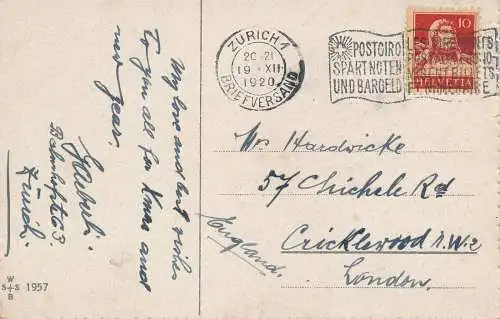 ZÜRICH 1
20-21
19·XII
1920
BRIEFVERSAND
POSTGIRO
SPART NOTEN
UND BARGELD
10
HELVETIA
My love and best wishes
to you all for Xmas and
new year.
Bahnhofstr. 3.
Zürich.
Mrs Hardwicke
57 Chichele Rd
Cricklewood N.W.2
London.
England.
W
S+S
B
1957